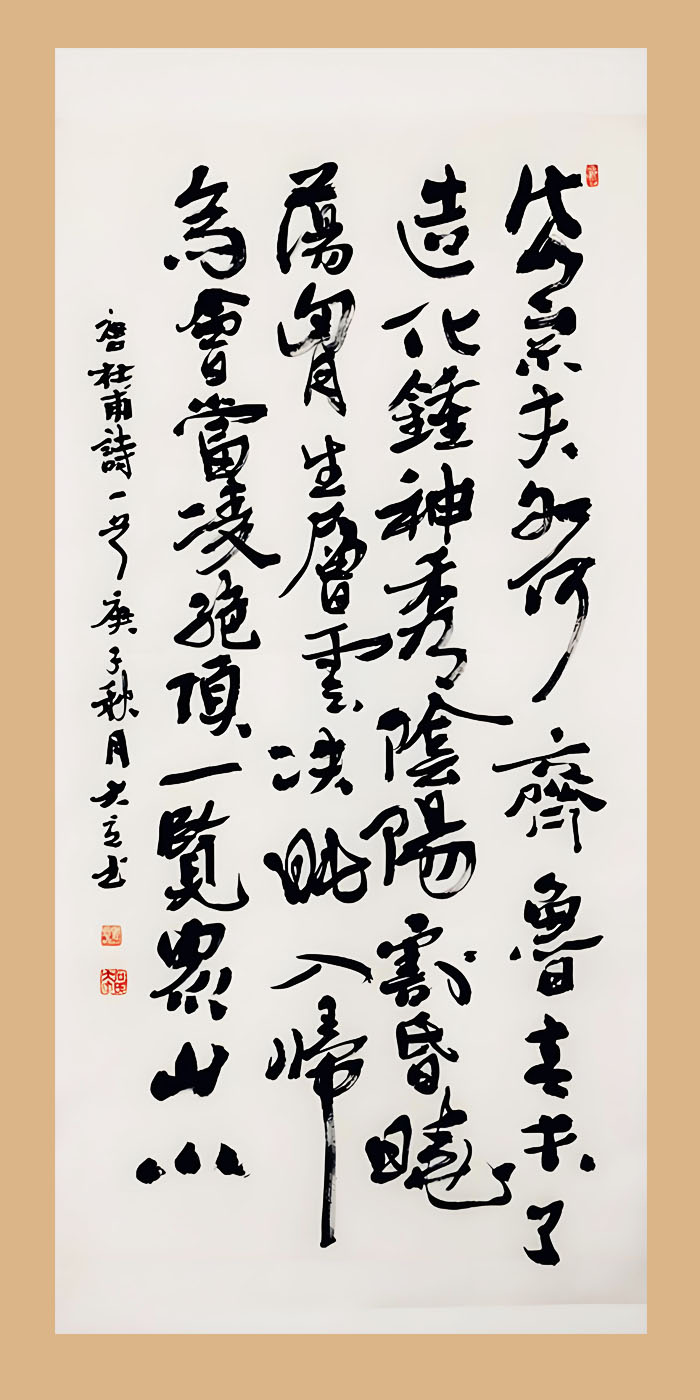 岱宗夫如何齊魯青未了
造化鍾神秀陰陽割昏曉
蕩胷生層雲決眦入歸
鳥會當凌絶頂一覽眾山小
唐杜甫詩一首庚子秋月大立书